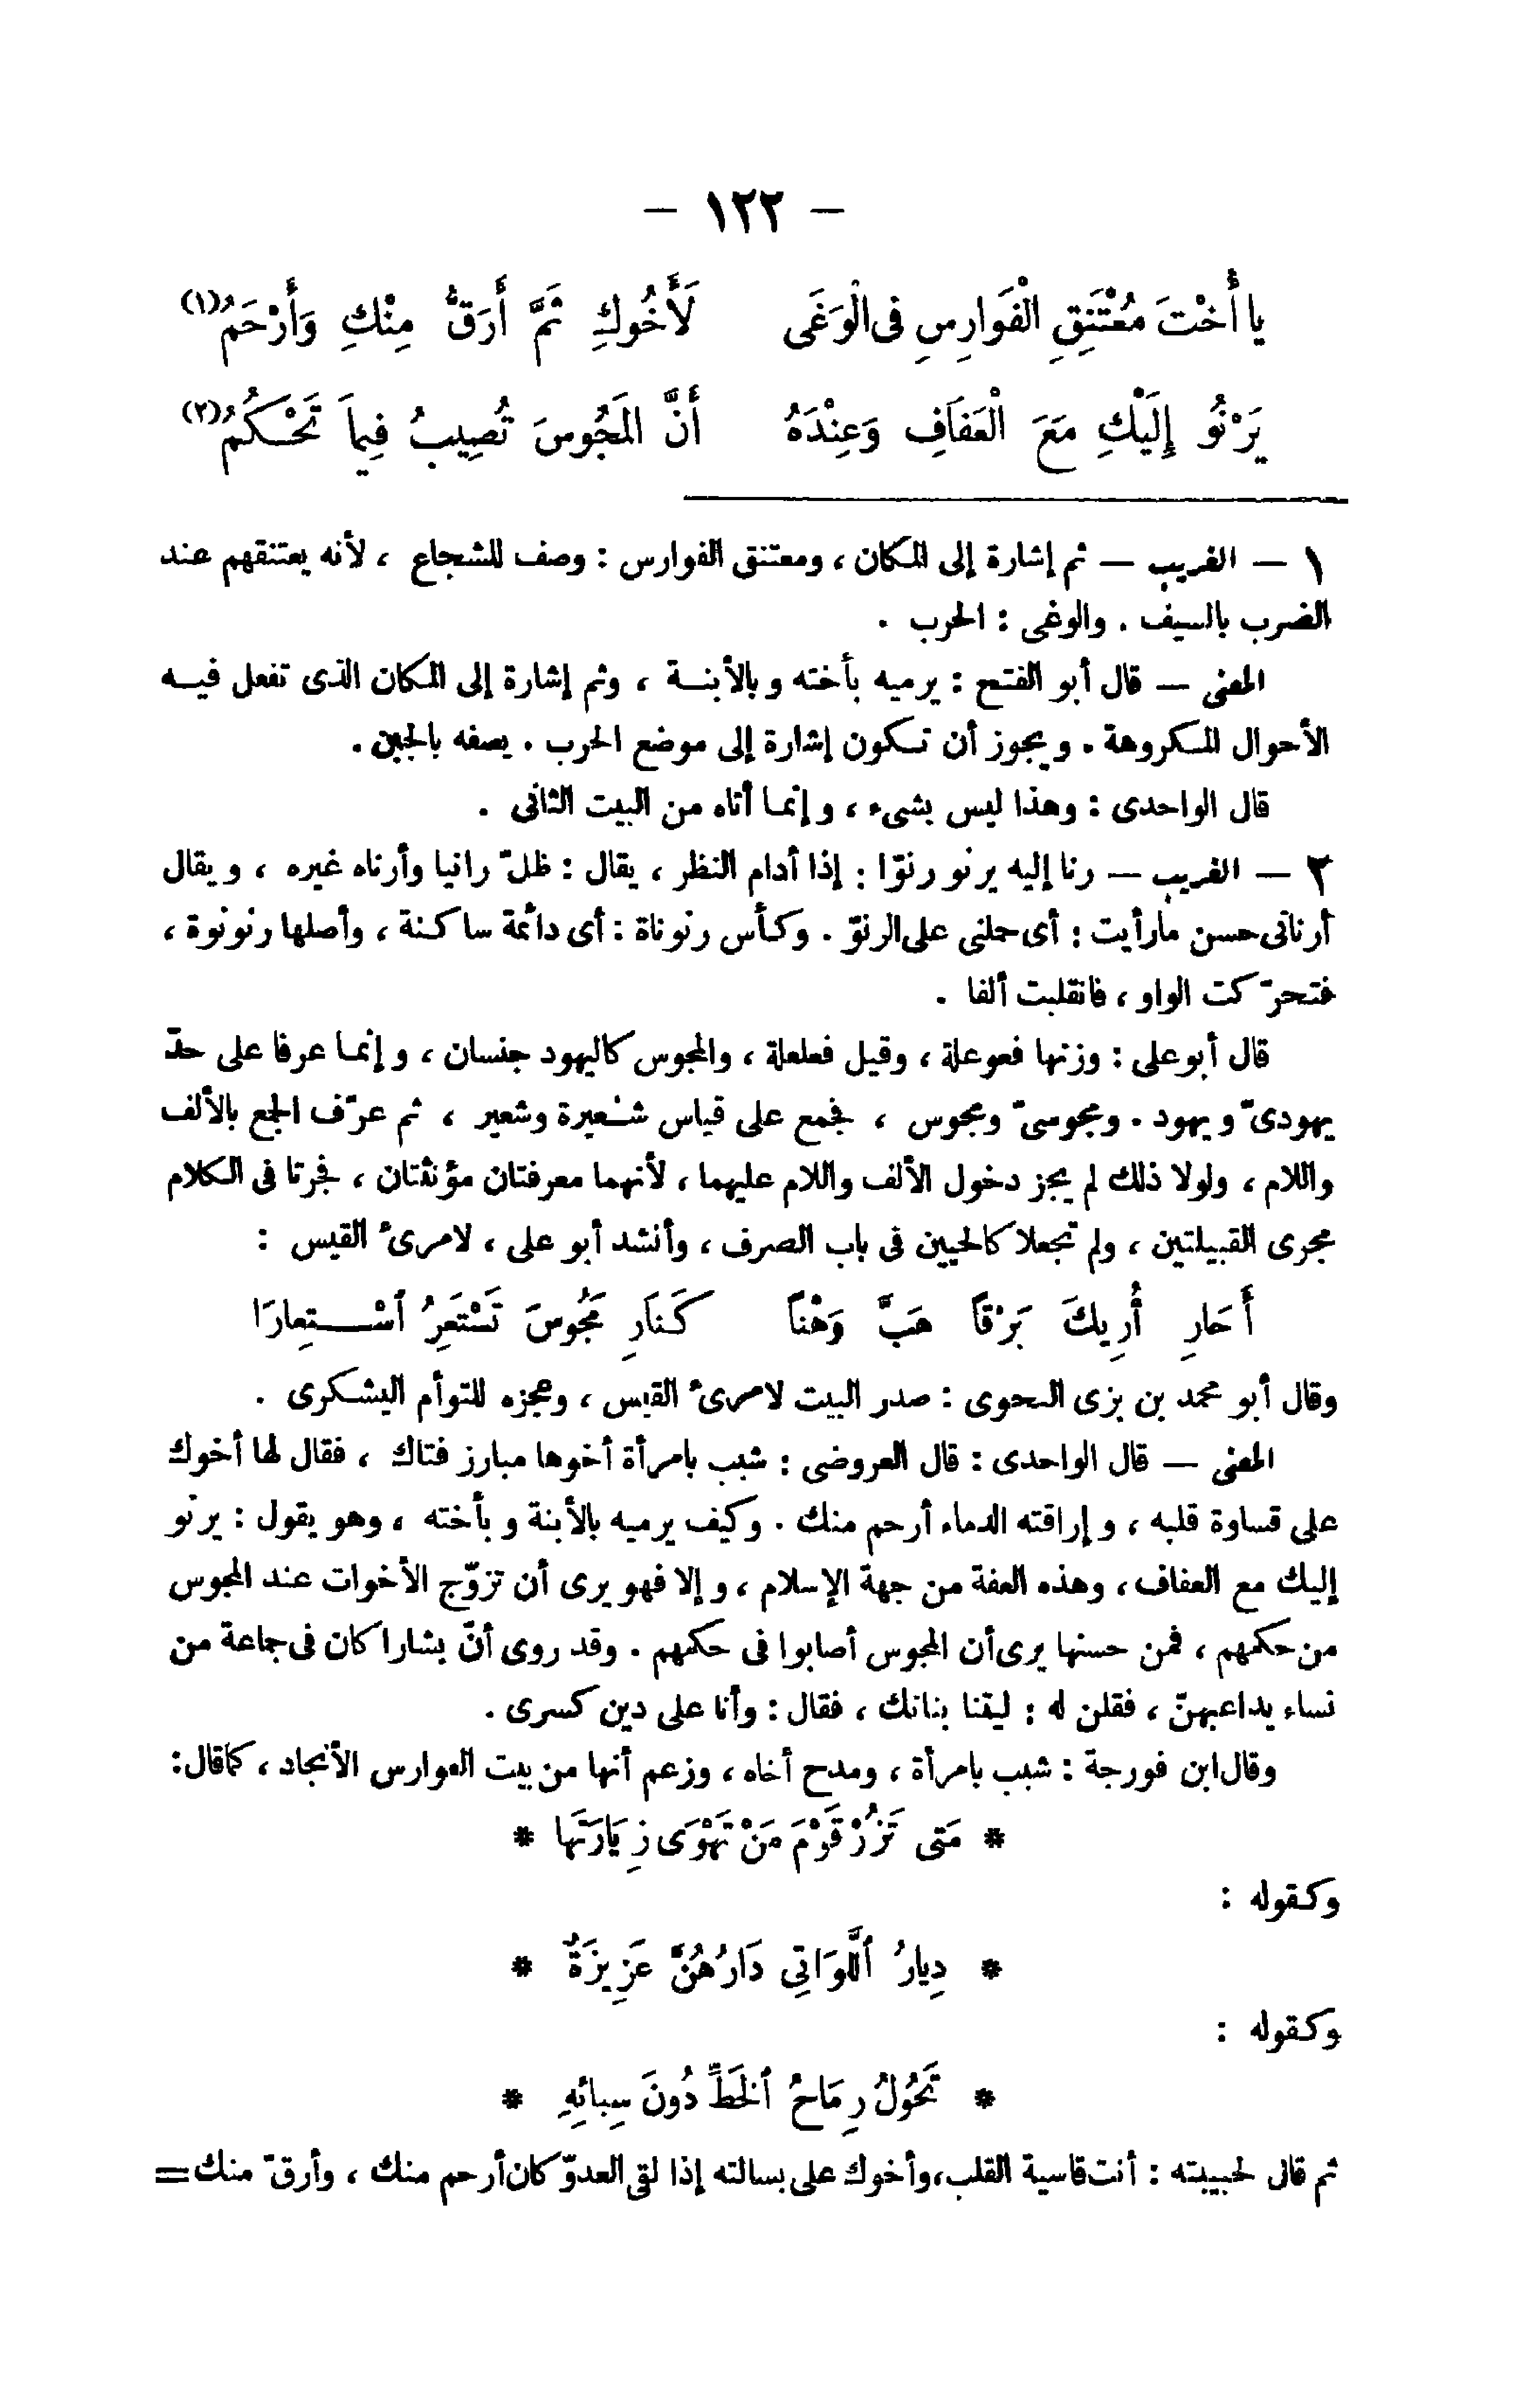 – ١٢٢ –
يا أُخْتَ مُعْتَنِقِ الْفَوَارِسِ فى الْوَغَى لَأَخُوكِ ثَمَّ أَرَقُّ مِنْكِ وَأَرْحَمُ (١)
يَرْنُو إِلَيْكِ مَعَ الْعَفَافِ وَعِنْدَهُ أَنَّ المَجُوسَ تُصِيبُ فِيمَا تَحْكُمُ (٢)
١ – الغريب – ثم إشارة إلى المكان ، ومعتنق الفوارس : وصف للشجاع ، لأنه يعتنقهم عند
الضرب بالسيف . والوغى : الحرب .
المعنى – قال أبو الفتح : يرميه بأخته وبالأبنة ، وثم إشارة إلى المكان الذى تفعل فيه
الأحوال المكروهة . ويجوز أن تكون إشارة إلى موضع الحرب . يصفه بالجبن .
قال الواحدى : وهذا ليس بشىء ، وإنما أتاه من البيت الثانى .
٢ – الغريب – رنا إليه يرنو رنوّا : إذا أدام النظر ، يقال : ظلّ رانيا وأرناه غيره ، ويقال
أرنانى حسن مارأيت : أى حملنى على الرنوّ . وكأس رنوناة : أى دائمة ساكنة ، وأصلها رنونوة ،
فتحرّكت الواو ، فانقلبت ألفا .
قال أبو على : وزنها فعوعلة ، وقيل فعلعلة ، والمجوس كاليهود جنسان ، وإنما عرفا على حدّ
يهودىّ ويهود . ومجوسىّ ومجوس ، فجمع على قياس شعيرة وشعير ، ثم عرّف الجمع بالألف
واللام ، ولولا ذلك لم يجز دخول الألف واللام عليهما ، لأنهما معرفتان مؤنثتان ، فجرتا فى الكلام
مجرى القبيلتين ، ولم تجعلا كالحيين فى باب الصرف ، وأنشد أبو على ، لامرئ القيس :
أَحَارِ أُرِيكَ بَرْقًا هَبَّ وَهْنًا كَنَارِ مَجُوسَ تَسْتَعِرُ ٱسْتِعارَا
وقال أبو محمد بن بزى النحوى : صدر البيت لامرئ القيس ، وعجزه للتوأم اليشكرى .
المعنى – قال الواحدى : قال العروضى : شبب بامرأة أخوها مبارز فتاك ، فقال لها أخوك
على قساوة قلبه ، وإراقته الدماء أرحم منك . وكيف يرميه بالأبنة وبأخته ، وهو يقول : يرنو
إليك مع العفاف ، وهذه العفة من جهة الإسلام ، وإلا فهو يرى أن تزوّج الأخوات عند المجوس
من حكمهم ، فمن حسنها يرى أن المجوس أصابوا فى حكمهم . وقد روى أنّ بشارا كان فى جماعة من
نساء يداعبهنّ ، فقلن له : ليتنا بناتك ، فقال : وأنا على دين كسرى .
وقال ابن فورجة : شبب بامرأة ، ومدح أخاه ، وزعم أنها من بيت الفوارس الأنجاد ، كما قال:
* مَتى تَزُرْ قَوْمَ مَنْ تَهْوَى زِيَارَتَهَا *
وكقوله :
* دِيارُ ٱللَّوَاتِى دَارُهُنَّ عَزِيزَةٌ *
وكقوله :
* تَحُولُ رِمَاحُ ٱلْخَطِّ دُونَ سِبائِهِ *
ثم قال لحبيبته : أنت قاسية القلب ، وأخوك على بسالته إذا لقى العدوّ كان أرحم منك ، وأرقّ منك =